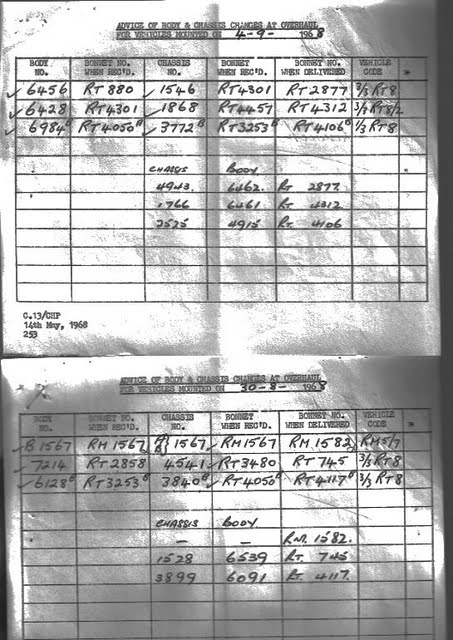 ADVICE OF BODY & CHASSIS CHANGES AT OVERHAUL
FOR VEHICLES MOUNTED ON 4-9- 1968
BODY NO. BONNET NO. WHEN REC'D. CHASSIS NO. BONNET WHEN REC'D. BONNET NO. WHEN DELIVERED VEHICLE CODE
✓ 6456 RT 880 ✓ 1546 RT4301 RT 2877 3/3 RT8
✓ 6428 RT4301 ✓ 1868 RT4457 RT 4312 RT8/2
✓ 6984 RT4050 ✓ 3772 RT3253 RT4106 1/3 RT8
CHASSIS BODY
4943. 6462. Rt 2877
1766 6461 Rt 4312
2525 4915 Rt. 4106
C.13/CHP
14th May, 1968
253
ADVICE OF BODY & CHASSIS CHANGES AT OVERHAUL
FOR VEHICLES MOUNTED ON 30-8- 1968
BODY NO. BONNET NO. WHEN REC'D. CHASSIS NO. BONNET WHEN REC'D. BONNET NO. WHEN DELIVERED VEHICLE CODE
✓ B 1567 RM 1567 1567 RM1567 RM 1582 RM5/7
✓ 7214 RT 2858 4541 RT3480 RT 745 3/3 RT8
✓ 6128 RT3253 3840 RT4050 RT4117 3/3 RT8
CHASSIS BODY
— — RM. 1582.
1528 6539 Rt. 745
3899 6091 Rt. 4117.